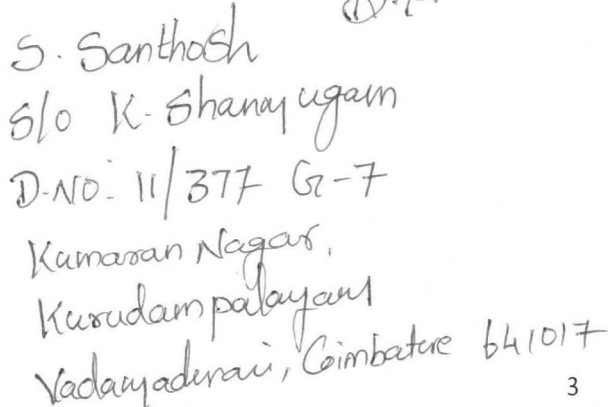 S. Santhosh
S/o K. Shanmugam
D.NO: 11/377 G-7
Kumaran Nagar,
Kurudampalayam
Coimbatore 641017
3